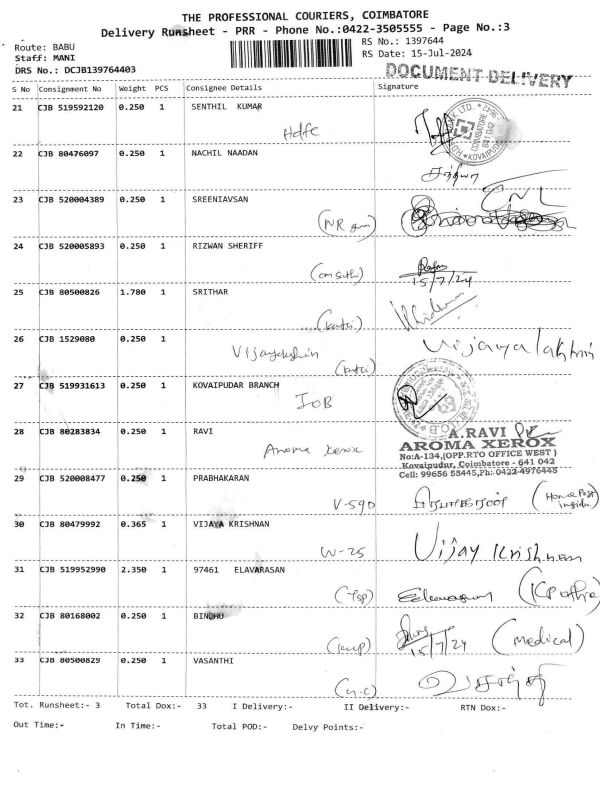 THE PROFESSIONAL COURIERS, COIMBATORE
Delivery Runsheet - PRR - Phone No.:0422-3505555 - Page No.:3
Route: BABU
Staff: MANI
DRS No.: DCJB139764403
RS No.: 1397644
RS Date: 15-Jul-2024
DOCUMENT DELIVERY
S No Consignment No Weight PCS Consignee Details Signature
21 CJB 519592120 0.250 1 SENTHIL KUMAR
Hdfc
22 CJB 80476097 0.250 1 NACHIL NAADAN
23 CJB 520004389 0.250 1 SREENIAVSAN
24 CJB 520005893 0.250 1 RIZWAN SHERIFF
15/7/24
25 CJB 80500826 1.780 1 SRITHAR
26 CJB 1529080 0.250 1
Vijayalakshmi
27 CJB 519931613 0.250 1 KOVAIPUDAR BRANCH
IOB
28 CJB 80283834 0.250 1 RAVI
Aroma xerox
A.RAVI
AROMA XEROX
No:A-134,(OPP.RTO OFFICE WEST)
Kovaipudur, Coimbatore - 641 042
Cell: 99656 55445,Ph:0422-4976445
29 CJB 520008477 0.250 1 PRABHAKARAN
V-590
(Home Post inside)
30 CJB 80479992 0.365 1 VIJAYA KRISHNAN
W-25 Vijay Krishnan
31 CJB 519952990 2.350 1 97461 ELAVARASAN
32 CJB 80168002 0.250 1 BINDHU
15/7/24 (medical)
33 CJB 80500829 0.250 1 VASANTHI
Tot. Runsheet:- 3 Total Dox:- 33 I Delivery:- II Delivery:- RTN Dox:-
Out Time:- In Time:- Total POD:- Delvy Points:-